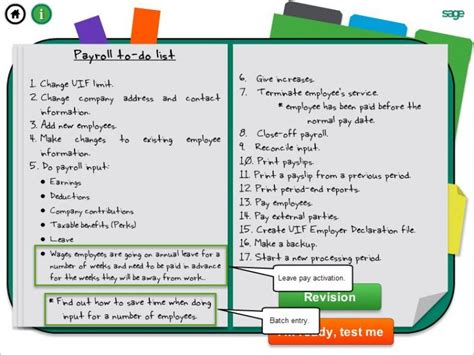 sage
Payroll to-do list
1. Change UIF limit.
2. Change company address and contact
information.
3. Add new employees.
4. Make changes to existing employee
information.
5. Do payroll input:
• Earnings
• Deductions
• Company contributions
• Taxable benefits (Perks)
• Leave
• Wages employees are going on annual leave for a
number of weeks and need to be paid in advance
for the weeks they will be away from work.
* Find out how to save time when doing
input for a number of employees.
6. Give increases.
7. Terminate employee's service.
* employee has been paid before the
normal pay date.
8. Close-off payroll.
9. Reconcile input.
10. Print payslips.
11. Print a payslip from a previous period.
12. Print period-end reports.
13. Pay employees.
14. Pay external parties.
15. Create UIF Employer Declaration file.
16. Make a backup.
17. Start a new processing period.
Leave pay activation.
Revision
Batch entry.
ready, test me